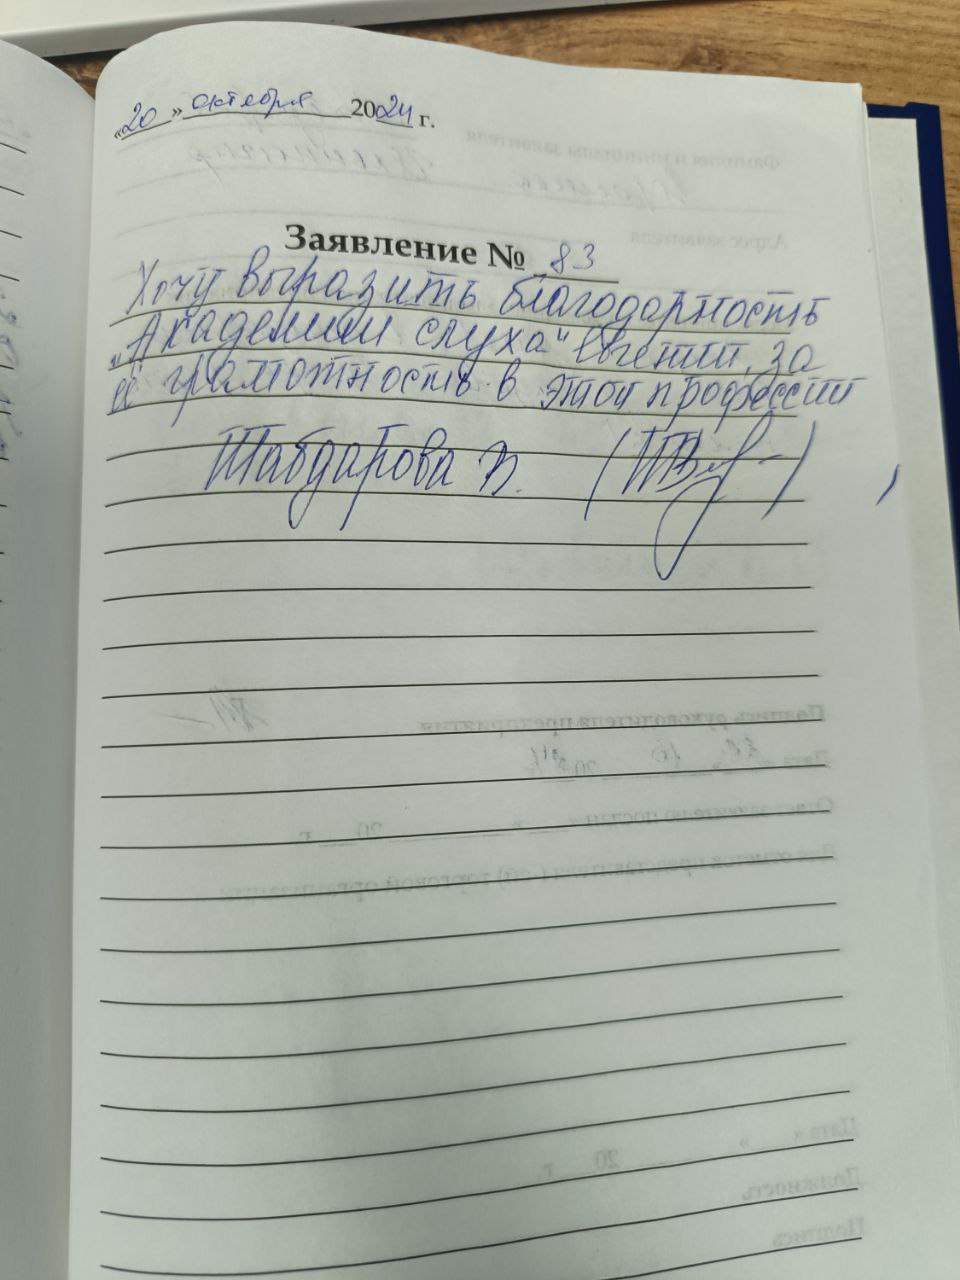 «20» октября 2024 г.
Заявление № 83
Хочу выразить благодарность
„Академии слуха" Евгении, за
её грамотность в этой профессии
Шабдарова В.